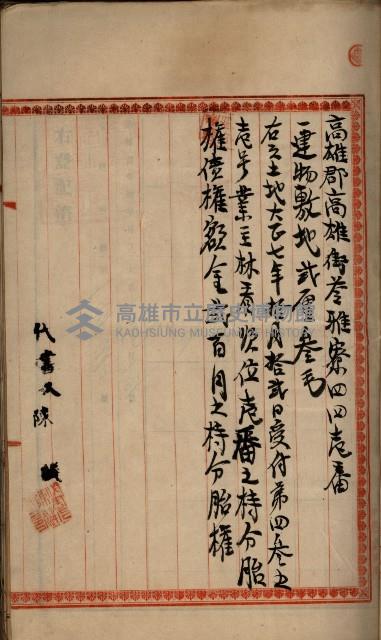 高雄郡高雄街苓雅寮四四壱番
一建物敷地貳厘叁毛
右ノ土地大正七年拾月拾貳日受付第四叁五
壱号業主林 順位壱番之持分胎
權債權額金 百円之持分胎權
代書人陳
高雄市立歷史博物館
KAOHSIUNG MUSEUM OF HISTORY